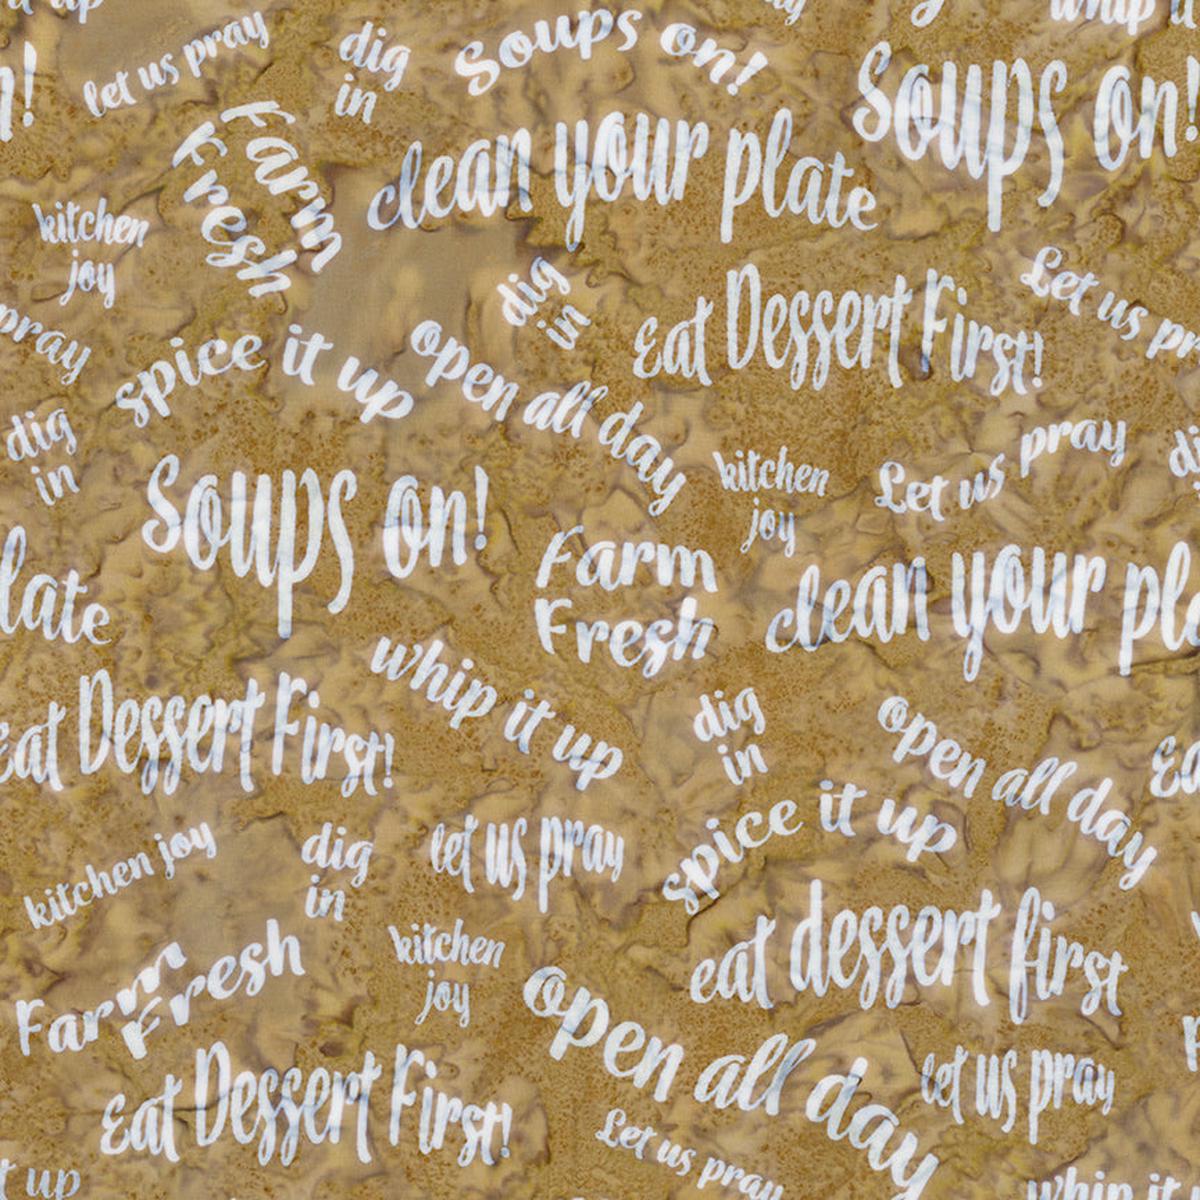 let us pray
dig
in
Soups on!
Soups on!
Farm
Fresh
clean your plate
kitchen
joy
dig
in
Eat Dessert First!
Let us
pray
spice it up
open all day
dig
in
kitchen
joy
Let us pray
Soups on!
Farm
Fresh
clean your
whip it up
Eat Dessert First!
dig
in
open all day
spice it up
kitchen joy
dig
in
let us pray
eat dessert first
Farm
Fresh
kitchen
joy
open all day
let us pray
Eat Dessert First!
Let us pray
up
whip it